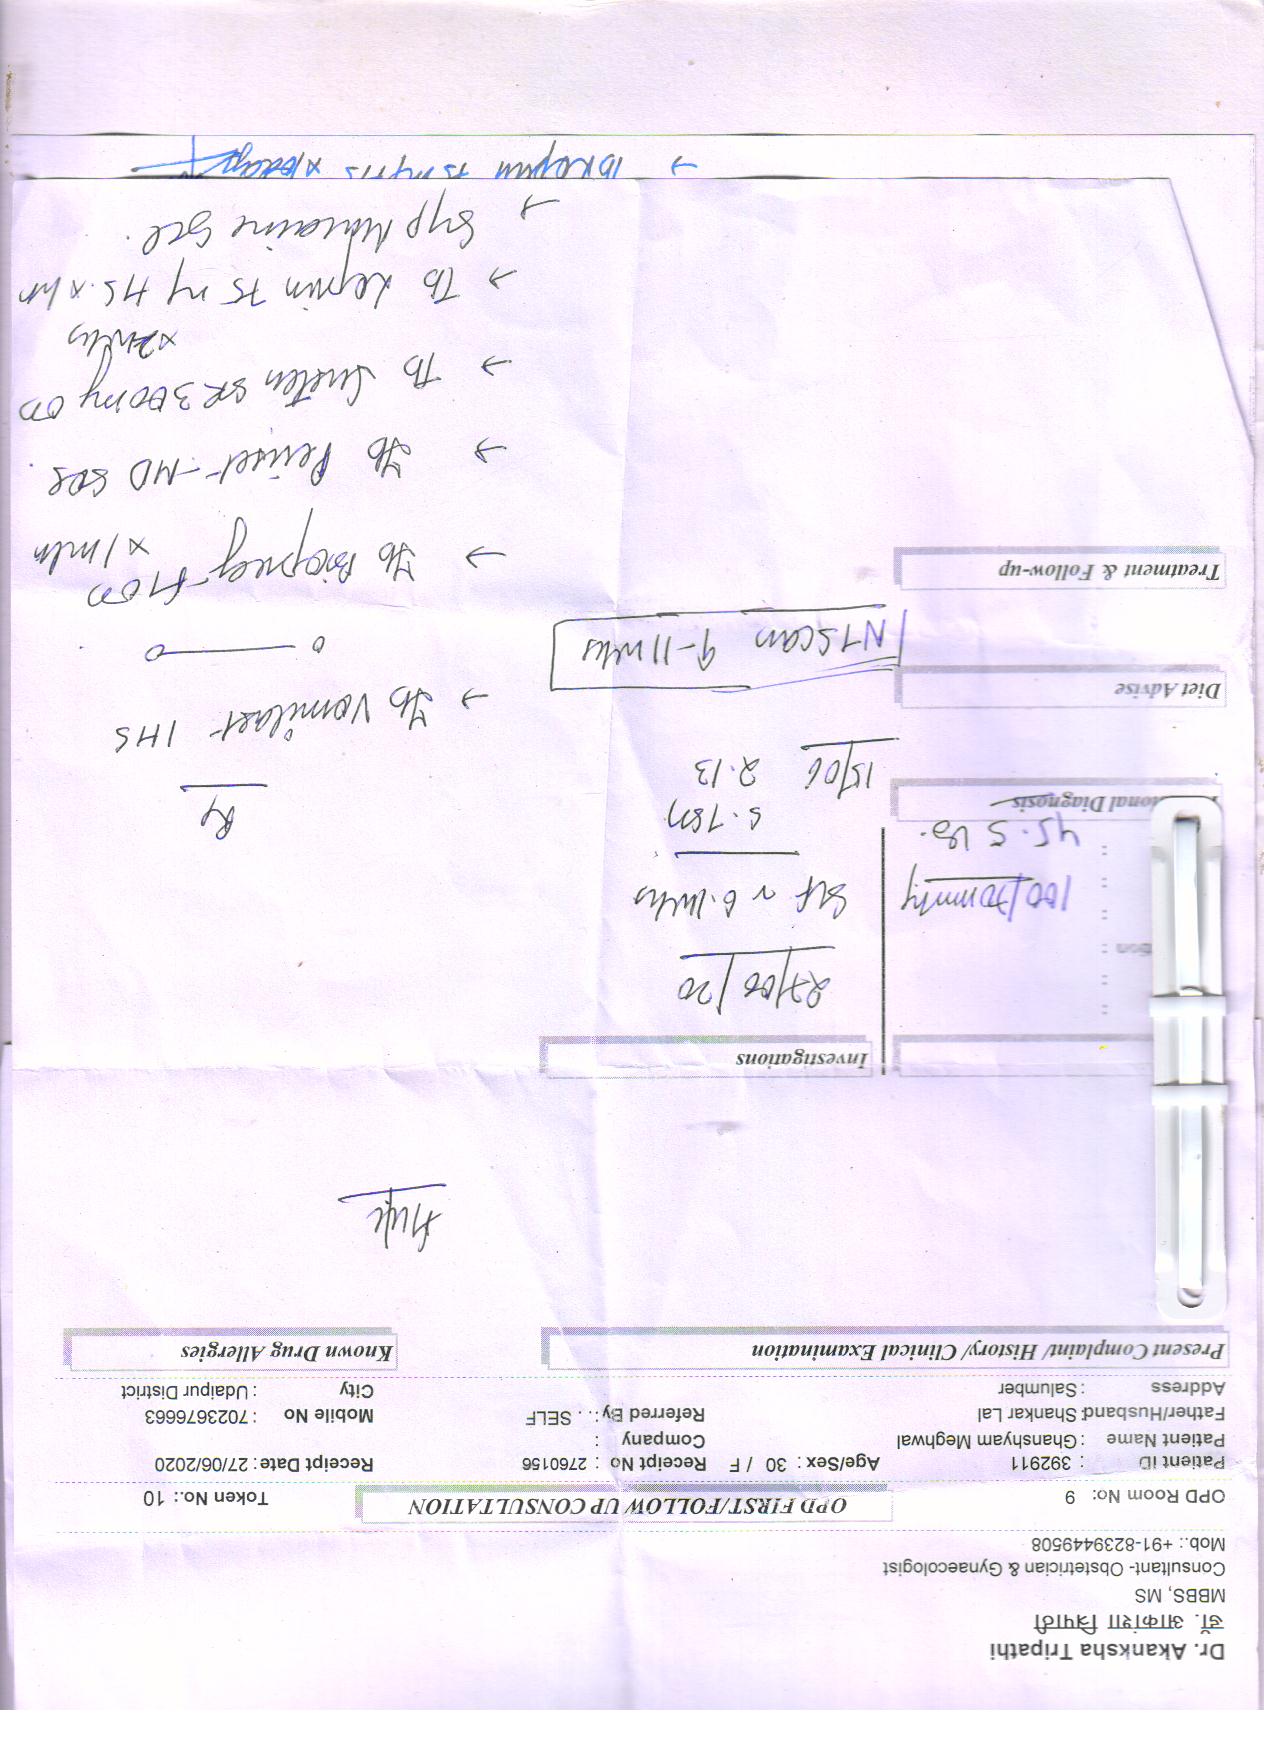 Dr. Akanksha Tripathi
डॉ. आकांशा त्रिपाठी
MBBS, MS
Consultant- Obstetrician & Gynaecologist
Mob.: +91-8239449508
OPD Room No: 9
OPD FIRST/FOLLOW UP CONSULTATION
Token No.: 10
Patient ID : 392911 Age/Sex : 30 / F Receipt No : 2760156 Receipt Date : 27/06/2020
Patient Name : Ghanshyam Meghwal Company :
Father/Husband: Shankar Lal Referred By : . . SELF Mobile No : 7023676663
Address : Salumber City : Udaipur District
Present Complaint/ History/ Clinical Examination
Known Drug Allergies
Investigations
27/06/20
100/70mmHg
45.5 kg.
SLF ~ 6.1wks
Diagnosis
15/06 2.13
Diet Advise
NT Scan 9-11 wks
Treatment & Follow-up
Rx
→ Tb Vomilast 1HS
→ Tb OD
x 1 mth
→ Tb -MD SOS
→ Tb Susten SR 300mg OD
x 2wks
→ Tb 75 mg HS x
→ Syp Mucaine Gel.
→ 75 mg HS x